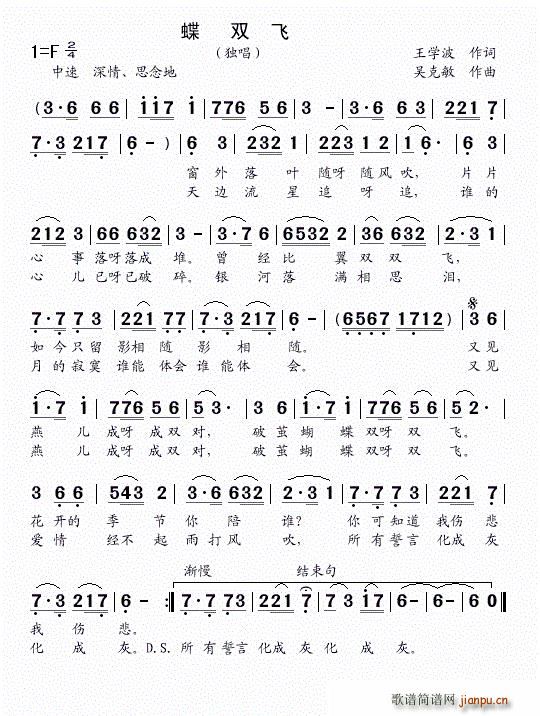 蝶 双 飞
1=F 2/4 （独唱） 王学波 作词
中速 深情、思念地 吴克敏 作曲
(3·6 66 | i i 7 i | 776 56 | 3 - | 3·6 63 | 221 7 |
7·3 217 | 6 -) | 6 3 | 232 1 | 223 12 | 1 6· | 6 3 |
窗外落 叶随呀随风吹，片片
天边流 星追 呀 追，谁的
212 3 | 66 632 | 3 - | 3·7 6 | 6532 2 | 36 632 | 2·3 1 |
心 事落呀落成 堆。曾 经比 翼双 双 飞，
心 儿已呀已破 碎。银 河落 满相 思 泪，
7·7 7 3 | 221 77 | 7·3 217 | 6 - | (6567 1712) | 3 6 |
如今只留 影相随 影 相 随。 又见
月的寂寞 谁能 体会谁能体 会。 又见
i·7 i | 776 56 | 5 3· | 3 6 | i·7 i | 776 56 | 6 - |
燕 儿 成呀 成双 对， 破茧 蝴 蝶 双呀 双 飞。
燕 儿 成呀 成双 对， 破茧 蝴 蝶 双呀 双 飞。
3 6 6 | 543 2 | 3·6 632 | 2·3 1 | 7·7 7 3 | 221 7 |
花 开的 季 节 你 陪 谁？ 你 可知道 我伤 悲
爱 情 经不 起 雨打 风 吹， 所 有誓言 化成 灰
渐慢 结束句
7·3 217 | 6 - :‖ 7·7 7 3 | 221 7 | 7 3 i 7 | 6 - | 6 - | 6 0 ‖
我 伤 悲。
化 成 灰。D.S.所 有誓言 化成 灰 化 成 灰。
歌谱简谱网
jianpu.cn